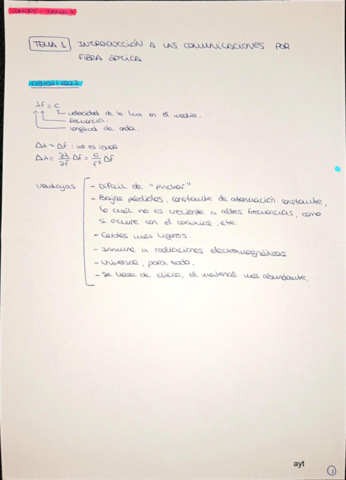 TEMA 1 INTRODUCCIÓN A LAS COMUNICACIONES POR
FIBRA ÓPTICA
λf = c
velocidad de la luz en el medio.
frecuencia.
longitud de onda.
Δλ = Δf : no es igual
Δλ = ∂λ/∂f Δf = c/f² Δf
ventajas
- Difícil de "pinchar"
- Bajas pérdidas, constante de atenuación constante,
lo cual no es creciente a altas frecuencias, como
sí ocurre con el coaxial, etc.
- Cables más ligeros.
- Inmune a radiaciones electromagnéticas
- Universal, para todo.
- Se hace de silicio, el material más abundante.
ayt
1